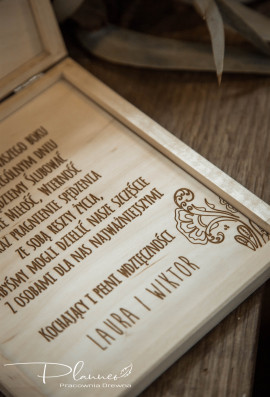 ROKU
DNIU
ŚLUBOWAĆ
MIŁOŚĆ, WIERNOŚĆ
PRAGNIENIE SPĘDZENIA
ZE SOBĄ RESZTY ŻYCIA,
MOGLI DZIELIĆ NASZE SZCZĘŚCIE
Z OSOBAMI DLA NAS NAJWAŻNIEJSZYMI
KOCHAJĄCY I PEŁNI WDZIĘCZNOŚCI
LAURA I WIKTOR
Planneo
Pracownia Drewna